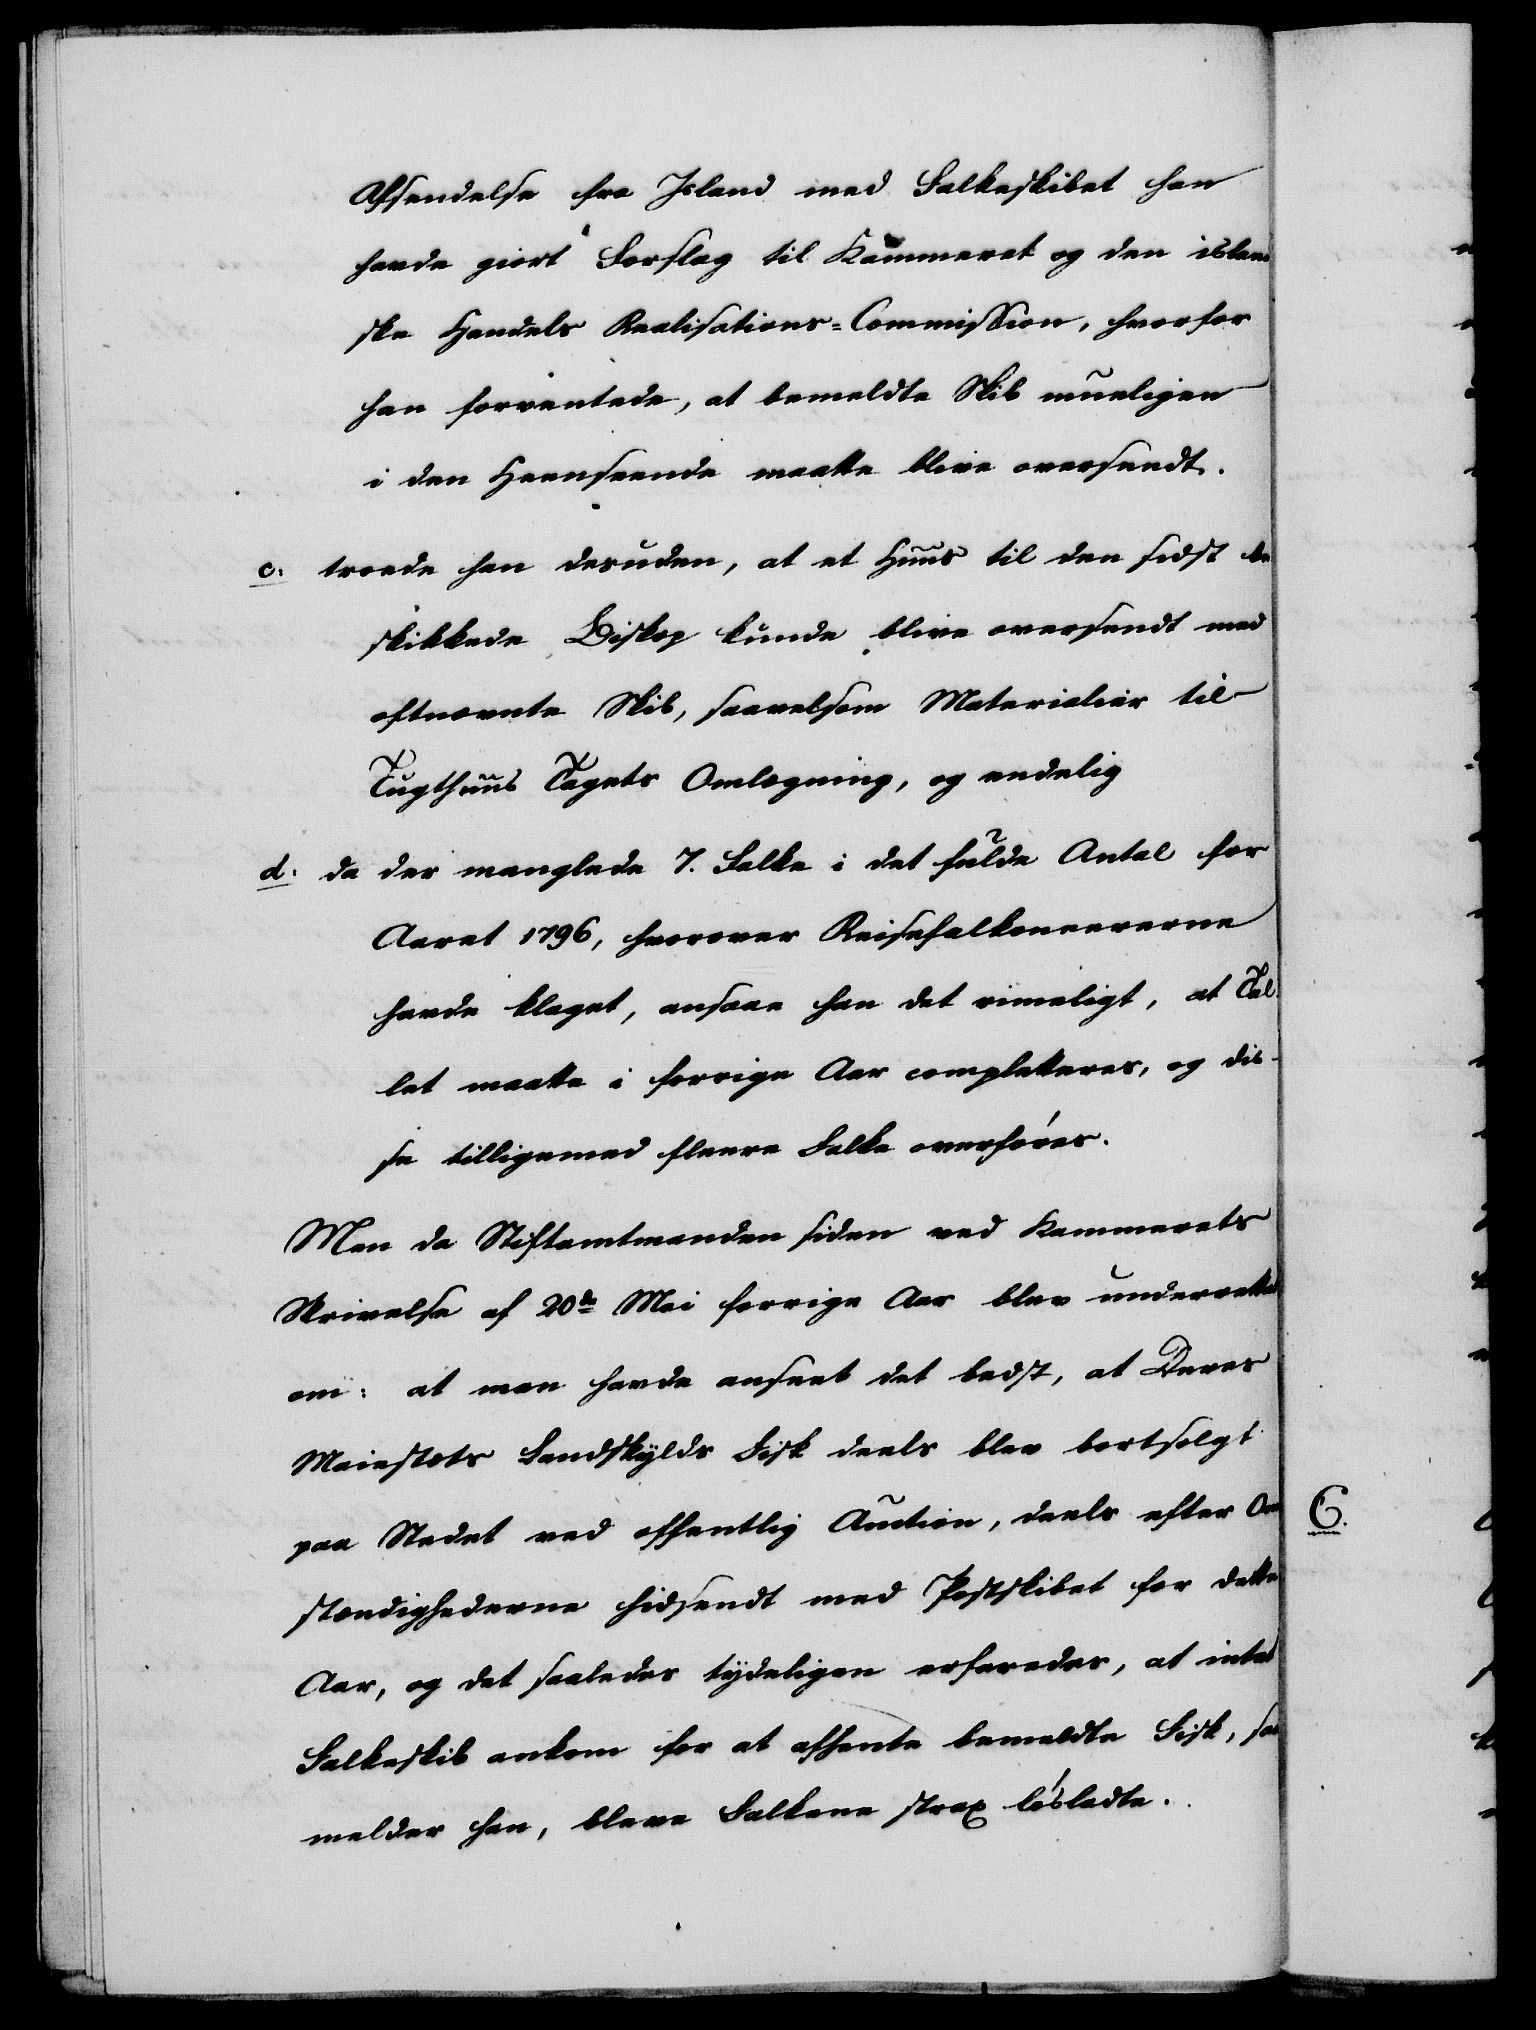 Afsendelse fra Island med Falkeskibet han
havde giort Forslag til Kammeret og den islan¬
ske Handels Realisations=Commission, hvorfor
han forventede, at bemeldte Skib mueligen
i den Henseende maatte blive oversendt.
c. troede han desuden, at et Huus til den sidst be
skikkede Biskop kunde blive oversendt med
oftnævnte Skib, saavelsom Materialier til
Tugthuus Tagets Omlægning, og endelig
d. da der manglede 7. Falke i det fulde Antal for
Aaret 1796, hvorover Reisefalkoneererne
havde klaget, ansaae han det rimeligt, at Tal
let maatte i forrige Aar completteres, og dis-
se tilligemed fleere Falke overføres.
Men da Stiftamtmanden siden ved Kammerets
Skrivelse af 20de Mai forrige Aar blev underrettet
om: at man havde anseet det bedst, at Deres
Maiestæts Landskylds Fisk deels blev bortsolgt
paa Stedet ved offentlig Auction, deels efter Om
stændighederne hidsendt med Postskibet for dette
Aar, og det saaledes tydeligen erfaredes, at intet
Falkeskib ankom for at afhente bemeldte Fisk, saa
melder han, bleve Falkene strax løsladte.
C.